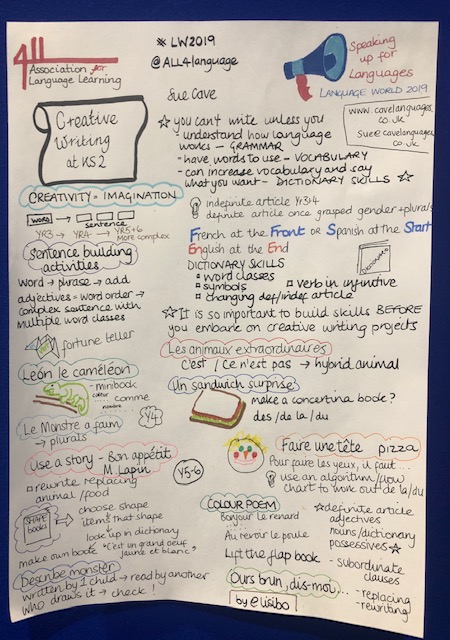 4ll
Association for
Language Learning
# LW2019
@ALL4language
Speaking
up for
Languages
LANGUAGE WORLD 2019
Sue Cave
www.cavelanguages
.co.uk
sue@cavelanguages
.co.uk
Creative
Writing
at KS2
☆ you can't write unless you
understand how language
works – GRAMMAR
- have words to use – VOCABULARY
- can increase vocabulary and say
what you want – DICTIONARY SKILLS ☆
CREATIVITY = IMAGINATION
WORD →
sentence
YR3 → YR4 → YR5+6
More complex
indefinite article Yr3+4
definite article once grasped gender + plurals
French at the Front or Spanish at the Start
English at the End
DICTIONARY SKILLS
▫ word classes
▫ symbols
▫ verb in infinitive
▫ changing def/indef article
DICTIONARY
Sentence building
activities
word → phrase → add
adjectives = word order →
complex sentence with
multiple word classes
fortune teller
☆ It is so important to build skills BEFORE
you embark on creative writing projects
Les animaux extraordinaires
C'est / Ce n'est pas → hybrid animal
Un sandwich surprise
make a concertina book?
des / de la / du
León le caméléon
- minibook
couleur ... comme
nombre
Y4
Le Monstre a faim
→ plurals
Use a story - Bon appétit
M. Lapin
▫ rewrite replacing
animal / food
Y5-6
Faire une tête pizza
Pour faire les yeux, il faut...
use an algorithm/flow
chart to work out de la/du
SHAPE
BOOKS
→ choose shape
items that shape
↳ look up in dictionary
make own book "c'est un grand oeuf
jaune et blanc"
COLOUR POEM
Bonjour le renard
Au revoir le poule
Lift the flap book
☆ definite article
adjectives
nouns/dictionary
possessives ☆
- subordinate
clauses
Describe monster
written by 1 child → read by another
who draws it → check !
Ours brun, dis-moi...
- replacing
- rewriting
by @lisibo